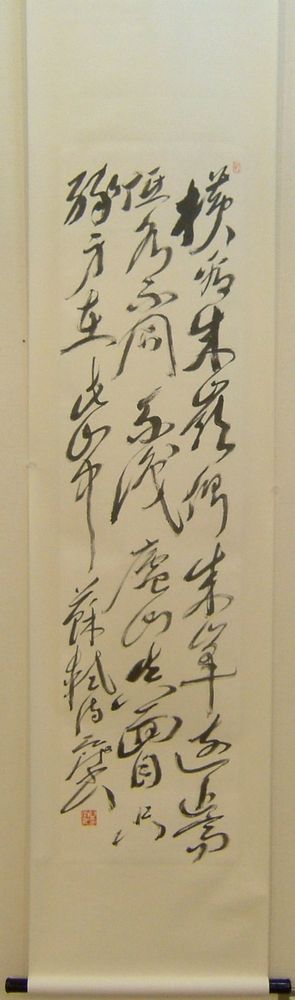 橫看成嶺側成峯遠近高
低各不同不識廬山真面目只
緣身在此山中 蘇軾詩